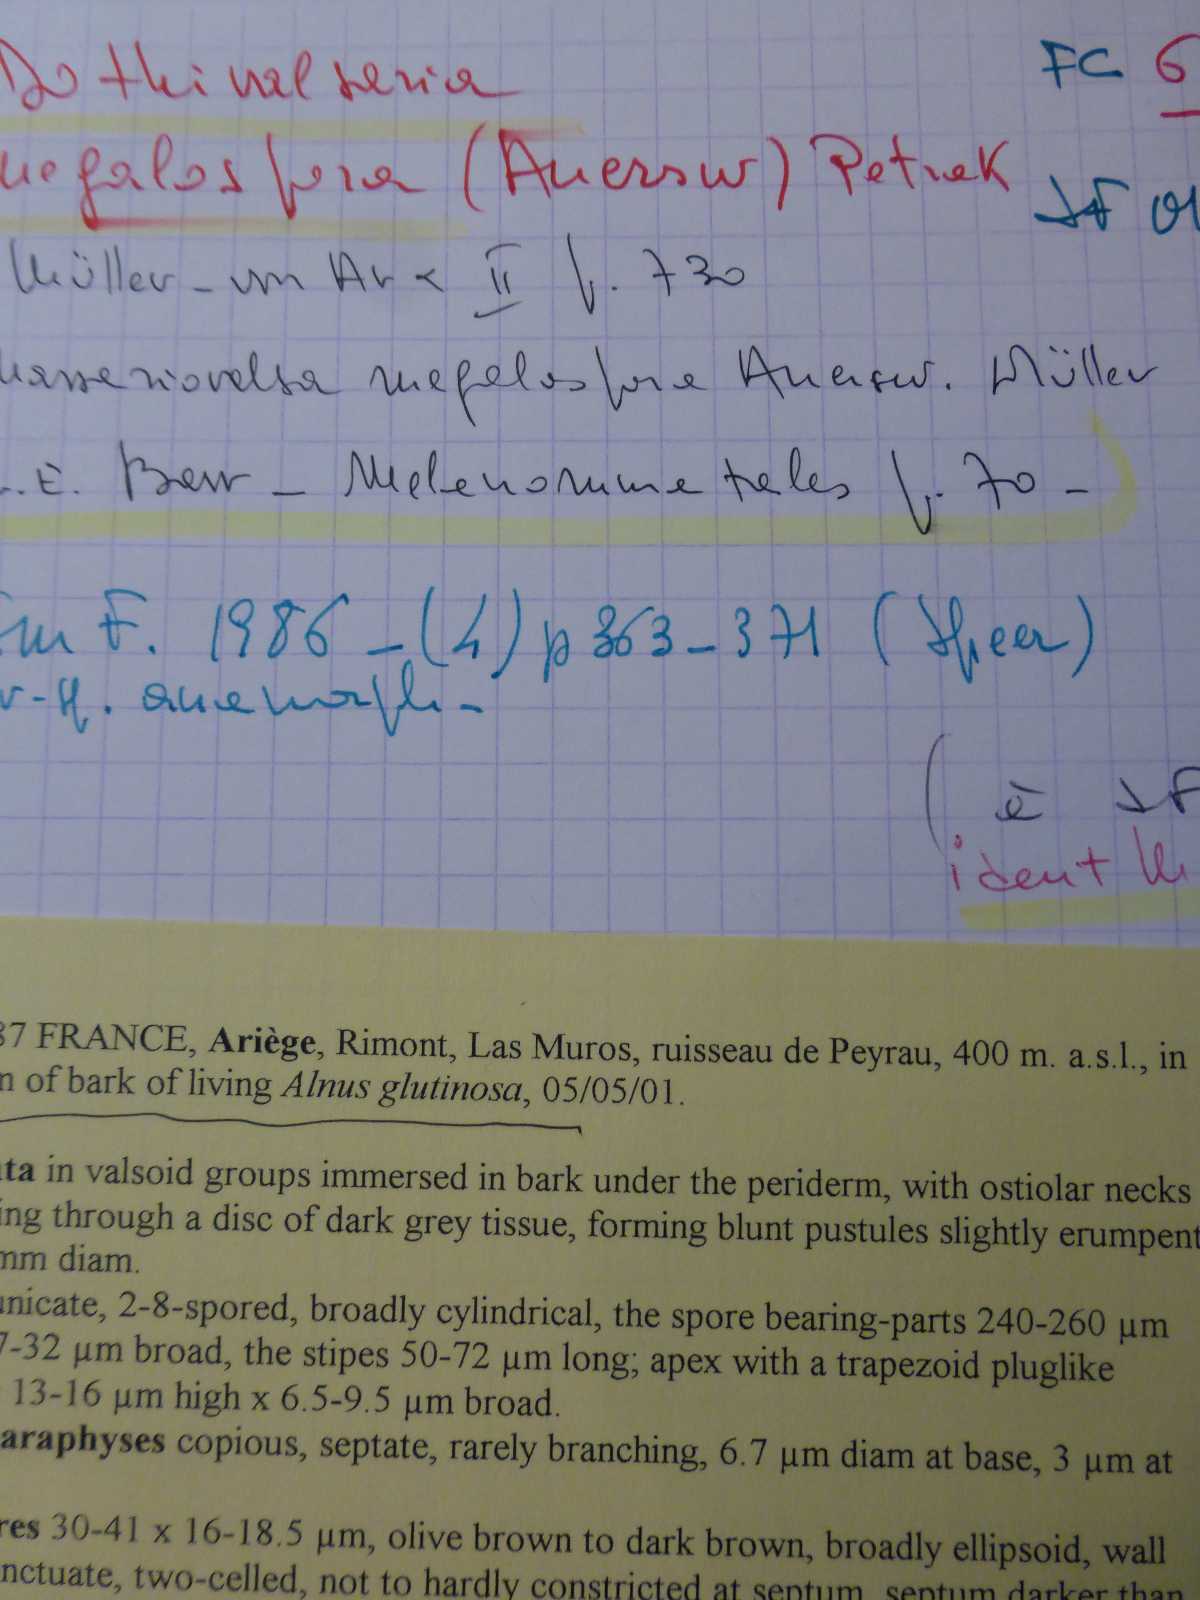 Dothivalseria FC 6
megalospora (Auersw) Petrak JF 01
Müller - von Arx II p. 730
Massariovalsa megalospora Auersw. Müller
.E. Barr - Melanommatales p. 70 -
F. 1986 - (4) p 363-371 (Speer)
anamorph. -
( è JF
ident
87 FRANCE, Ariège, Rimont, Las Muros, ruisseau de Peyrau, 400 m. a.s.l., in
n of bark of living Alnus glutinosa, 05/05/01.
ata in valsoid groups immersed in bark under the periderm, with ostiolar necks
ing through a disc of dark grey tissue, forming blunt pustules slightly erumpent
mm diam.
unicate, 2-8-spored, broadly cylindrical, the spore bearing-parts 240-260 µm
7-32 µm broad, the stipes 50-72 µm long; apex with a trapezoid pluglike
13-16 µm high x 6.5-9.5 µm broad.
araphyses copious, septate, rarely branching, 6.7 µm diam at base, 3 µm at
res 30-41 x 16-18.5 µm, olive brown to dark brown, broadly ellipsoid, wall
nctuate, two-celled, not to hardly constricted at septum, septum darker than